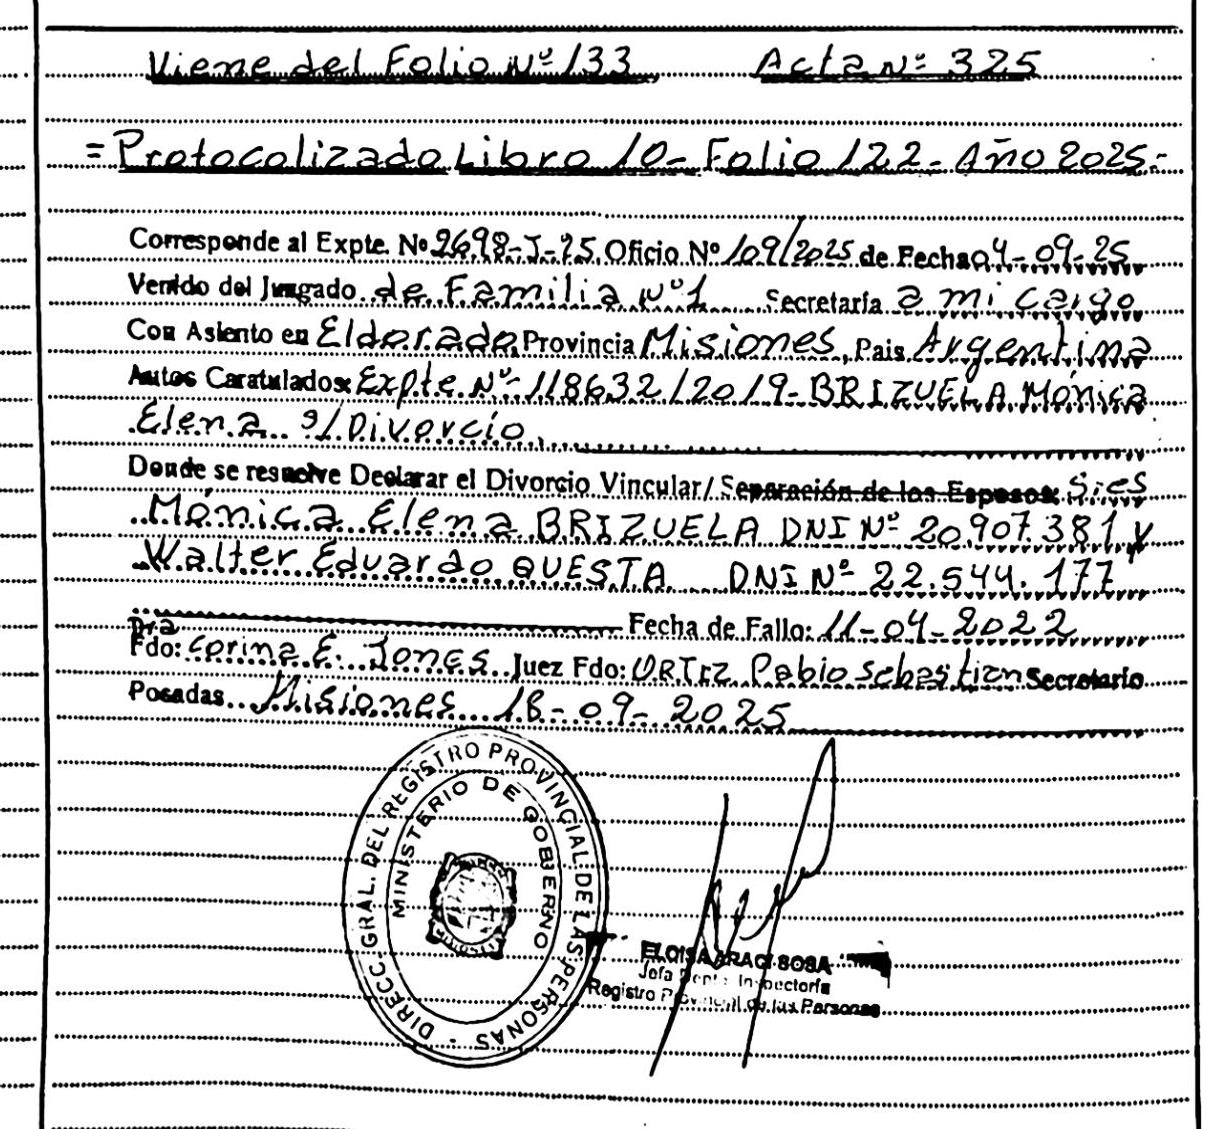 Viene del Folio Nº 133 Acta Nº 325
= Protocolizado Libro 10- Folio 122- Año 2025-
Corresponde al Expte. Nº 2698-J-25 Oficio Nº 109/2025 de Fecha 04-09-25
Venido del Juzgado de Familia Nº 1 Secretaría a mi cargo
Con Asiento en Eldorado Provincia Misiones, Pais Argentina
Autos Caratulados: Expte. Nº 118632/2019- BRIZUELA Mónica
Elena s/Divorcio
Donde se resuelve Declarar el Divorcio Vincular/ Separación de los Esposos: Sres
Mónica Elena BRIZUELA DNI Nº 20.907.381 y
Walter Eduardo QUESTA DNI Nº 22.544.177
Fecha de Fallo: 11-04-2022
Dra
Fdo: Corina E. Jones Juez Fdo: ORTIZ Pabio Sebastian Secretario
Posadas Misiones 18-09-2025
DIREC. GRAL. DEL REGISTRO PROVINCIAL DE LAS PERSONAS
MINISTERIO DE GOBIERNO
ELOISA ARACI SOSA
Jefa Inspectoría
Registro Provincial de las Personas